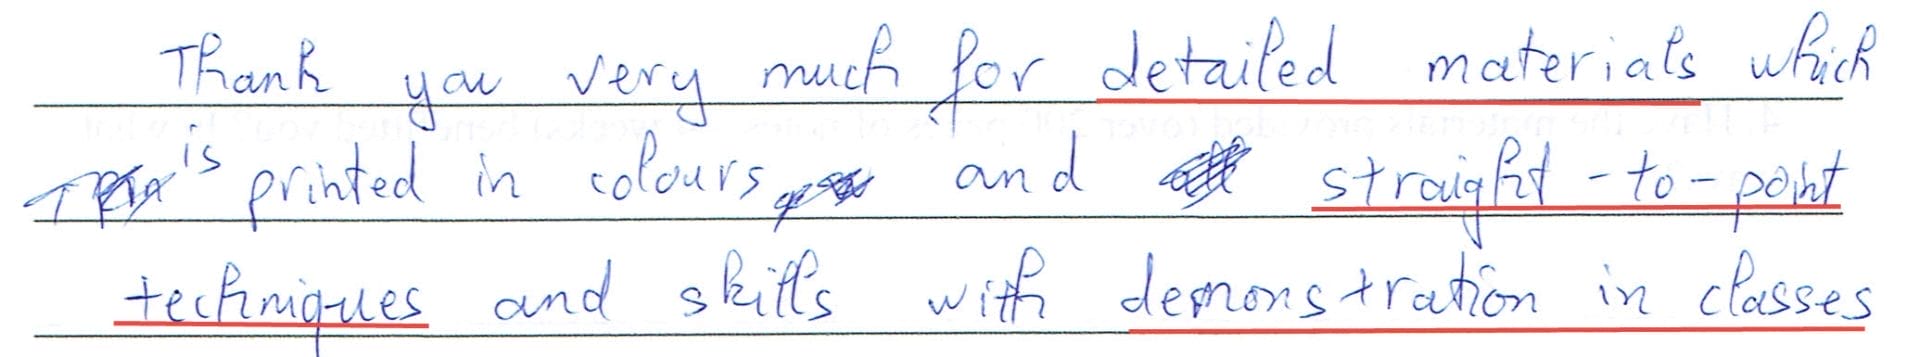 Thank you very much for detailed materials which
is printed in colours and straight-to-point
techniques and skills with demonstration in classes